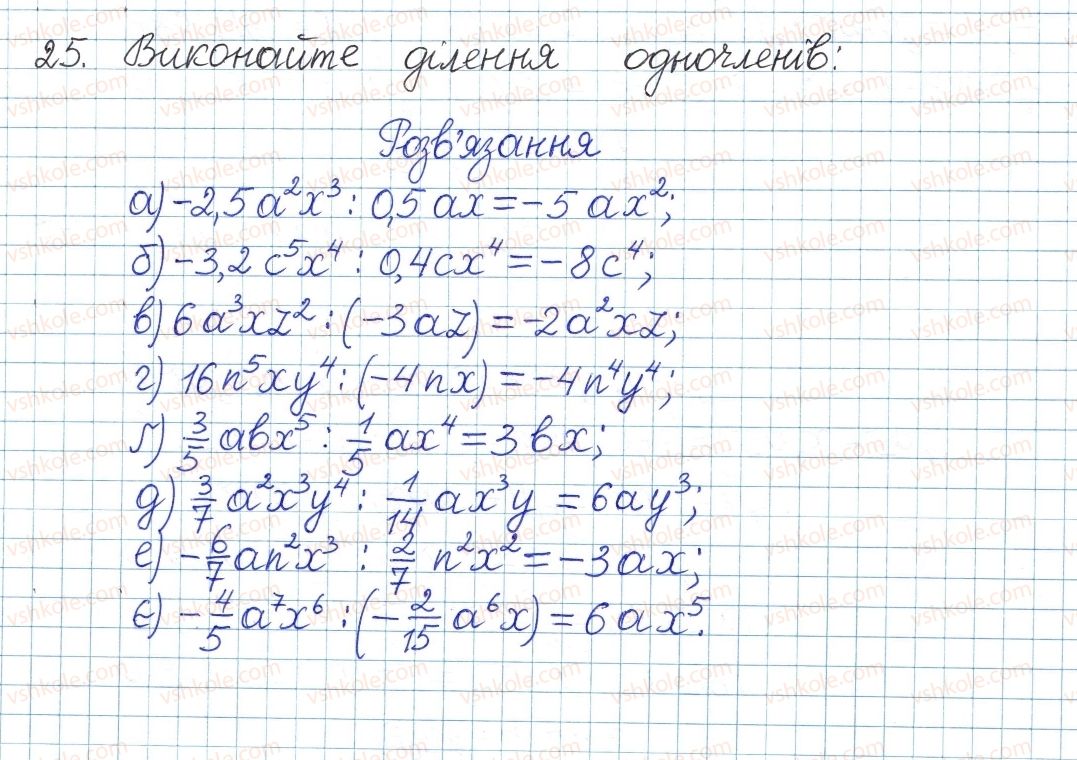 25. Виконайте ділення одночленів:
Розв'язання
а) -2,5a²x³ : 0,5ax = -5ax²;
б) -3,2c⁵x⁴ : 0,4cx⁴ = -8c⁴;
в) 6a³xz² : (-3az) = -2a²xz;
г) 16n⁵xy⁴ : (-4nx) = -4n⁴y⁴;
ґ) 3/5 abx⁵ : 1/5 ax⁴ = 3bx;
д) 3/7 a²x³y⁴ : 1/14 ax³y = 6ay³;
е) -6/7 an²x³ : 2/7 n²x² = -3ax;
є) -4/5 a⁷x⁶ : (-2/15 a⁶x) = 6ax⁵.